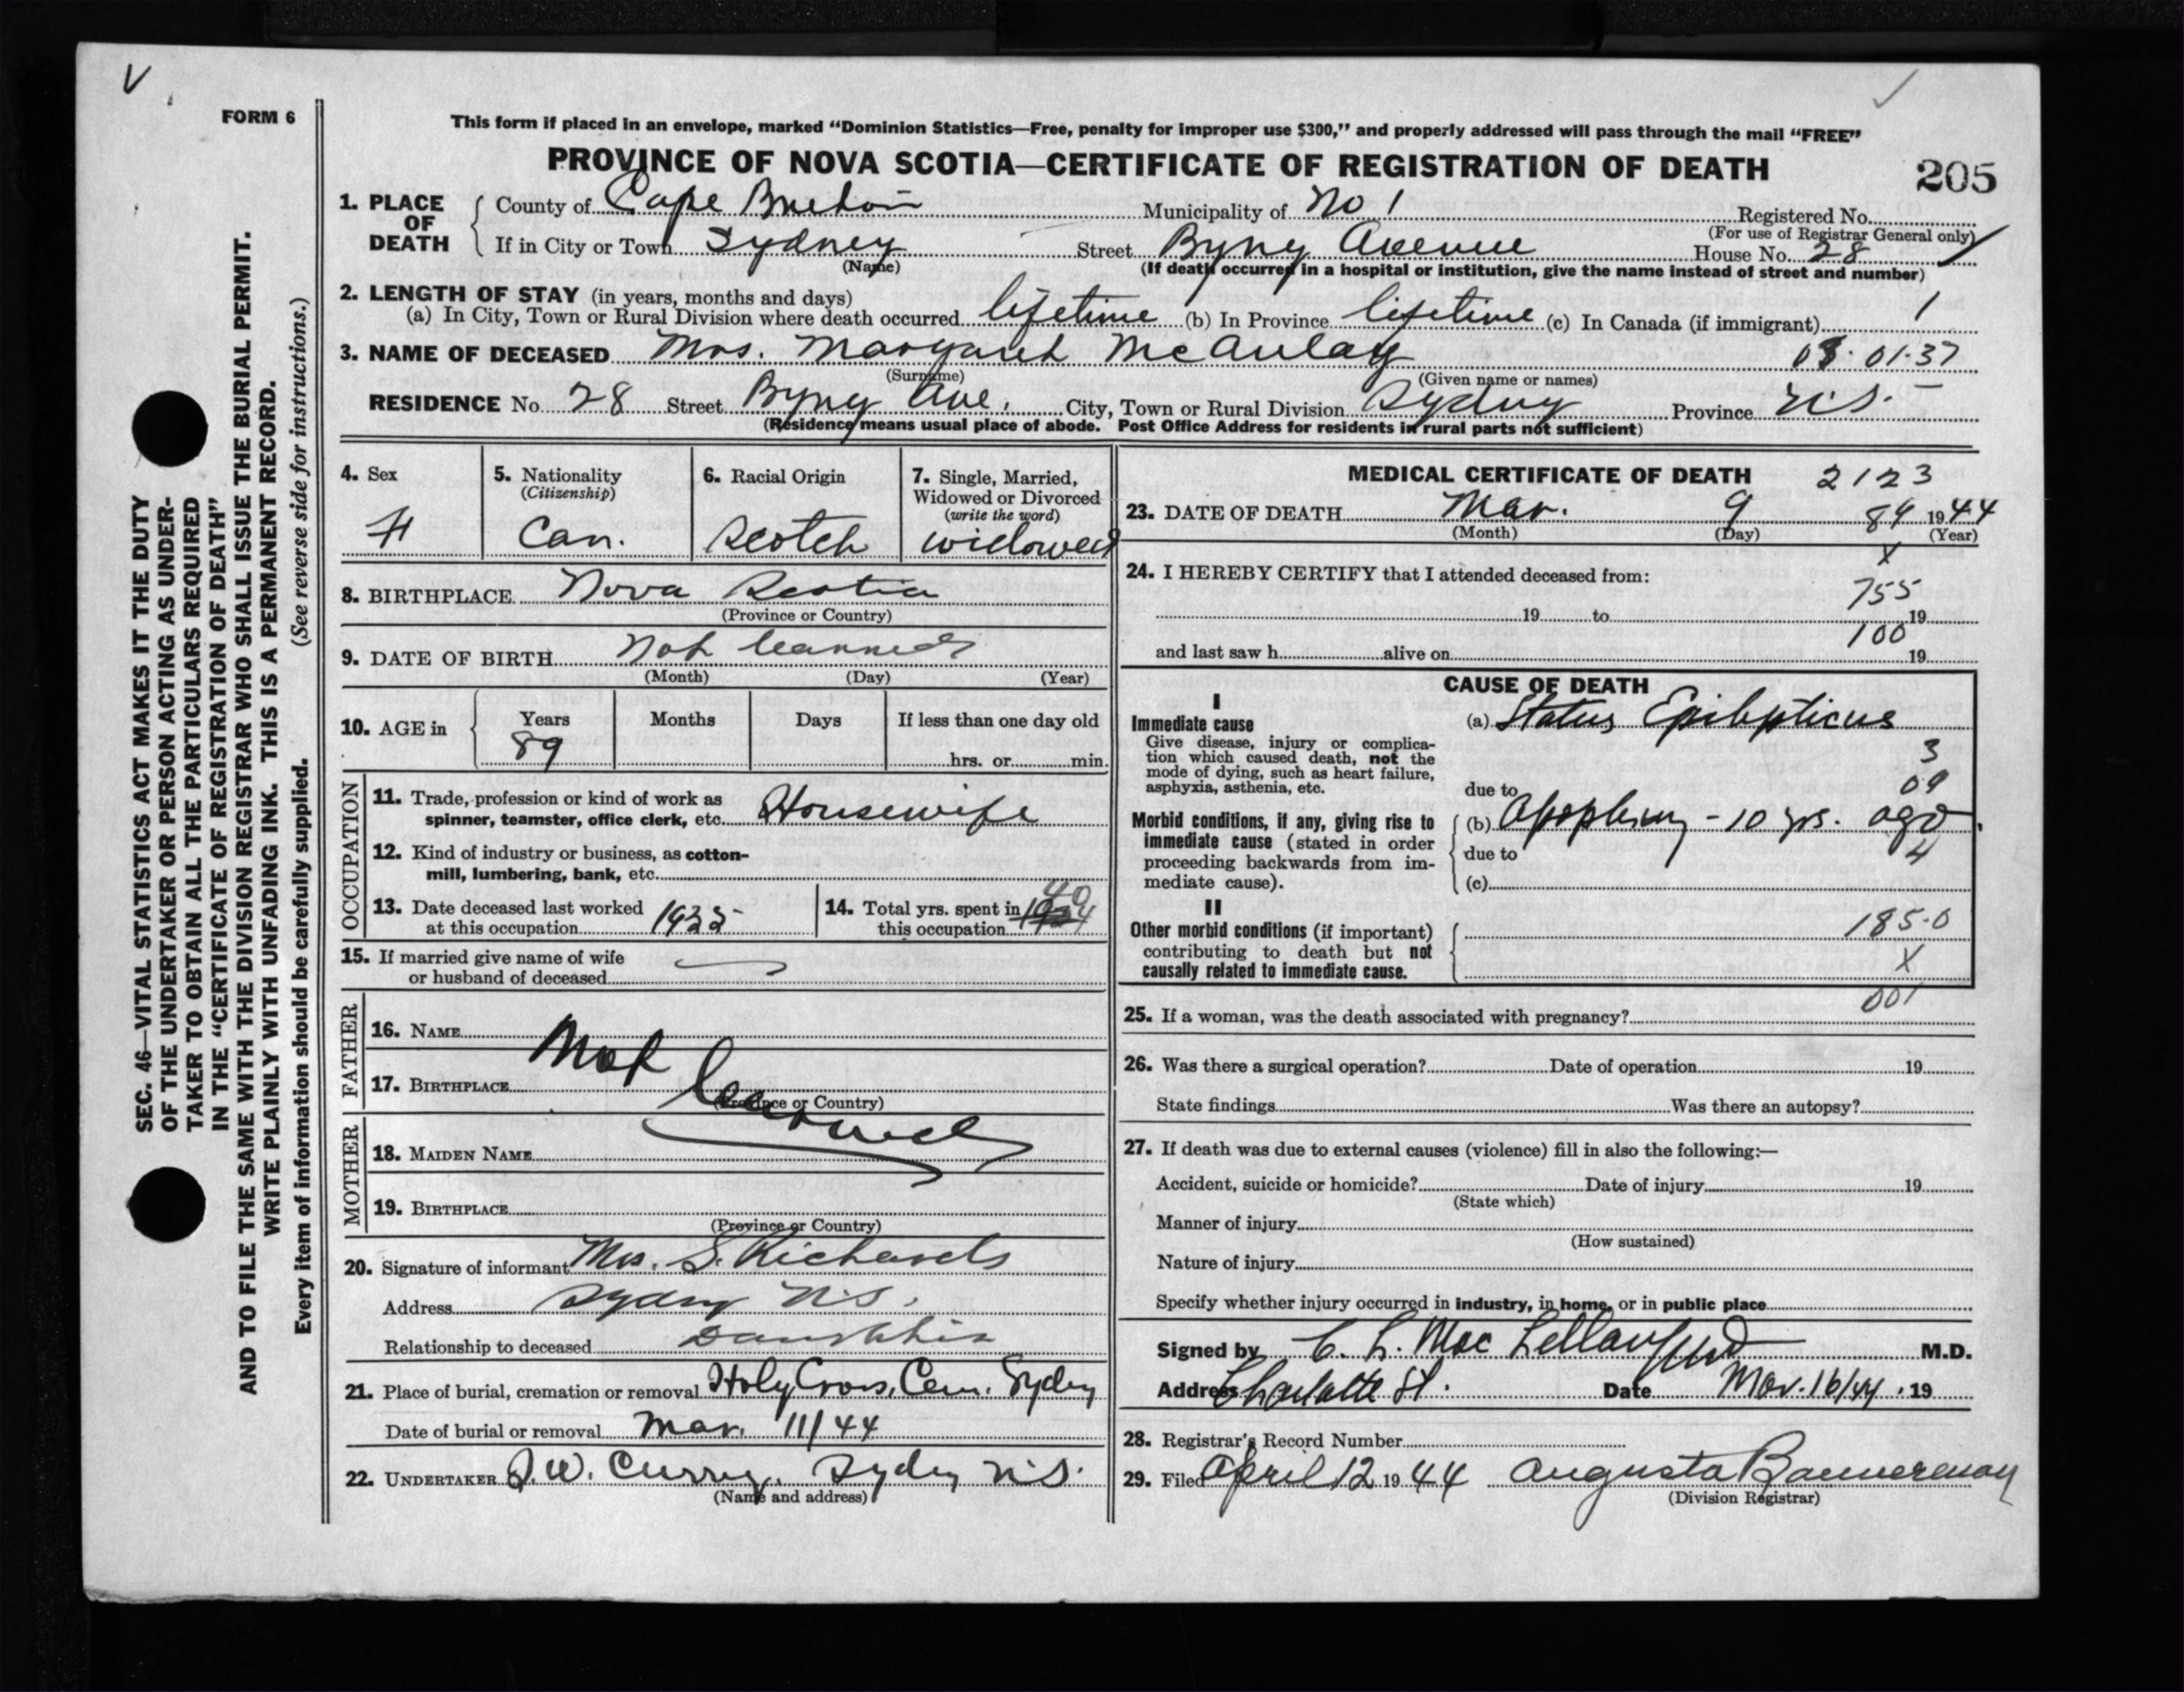 V
FORM 6
This form if placed in an envelope, marked “Dominion Statistics—Free, penalty for improper use $300,” and properly addressed will pass through the mail “FREE”
PROVINCE OF NOVA SCOTIA—CERTIFICATE OF REGISTRATION OF DEATH
205
1. PLACE OF DEATH
County of Cape Breton Municipality of No 1 Registered No.
(For use of Registrar General only)
If in City or Town Sydney Street Byng Avenue House No. 28
(Name) (If death occurred in a hospital or institution, give the name instead of street and number)
2. LENGTH OF STAY (in years, months and days)
(a) In City, Town or Rural Division where death occurred lifetime (b) In Province lifetime (c) In Canada (if immigrant) 1
3. NAME OF DECEASED Mrs. Margaret McAulay 01-37
(Surname) (Given name or names)
RESIDENCE No. 28 Street Byng Ave. City, Town or Rural Division Sydney Province N.S.
(Residence means usual place of abode. Post Office Address for residents in rural parts not sufficient)
4. Sex
F
5. Nationality
(Citizenship)
Can.
6. Racial Origin
Scotch
7. Single, Married,
Widowed or Divorced
(write the word)
widowed
8. BIRTHPLACE Nova Scotia
(Province or Country)
9. DATE OF BIRTH Not learned
(Month) (Day) (Year)
10. AGE in
Years Months Days If less than one day old
89 hrs. or min.
OCCUPATION
11. Trade, profession or kind of work as
spinner, teamster, office clerk, etc. Housewife
12. Kind of industry or business, as cotton-
mill, lumbering, bank, etc.
13. Date deceased last worked
at this occupation
14. Total yrs. spent in 40
this occupation
15. If married give name of wife
or husband of deceased
FATHER
16. NAME
Not learned
17. BIRTHPLACE
(Province or Country)
MOTHER
18. MAIDEN NAME
19. BIRTHPLACE
(Province or Country)
20. Signature of informant Mrs. S. Richards
Address Sydney N.S.
Relationship to deceased Daughter
21. Place of burial, cremation or removal Holy Cross, Cem. Sydney
Date of burial or removal Mar. 11/44
22. UNDERTAKER J.W. Curry, Sydney N.S.
(Name and address)
MEDICAL CERTIFICATE OF DEATH 2123
23. DATE OF DEATH Mar. 9 89 1944
(Month) (Day) (Year)
X
24. I HEREBY CERTIFY that I attended deceased from:
755
19 to 19
100
and last saw h alive on 19
CAUSE OF DEATH
I
Immediate cause
Give disease, injury or complica-
tion which caused death, not the
mode of dying, such as heart failure,
asphyxia, asthenia, etc.
(a) Status Epilepticus
3
09
due to
Morbid conditions, if any, giving rise to
immediate cause (stated in order
proceeding backwards from im-
mediate cause).
(b) Apoplexy - 10 yrs. ago.
due to 4
(c)
II
Other morbid conditions (if important)
contributing to death but not
causally related to immediate cause.
185.0
X
001
25. If a woman, was the death associated with pregnancy?
26. Was there a surgical operation? Date of operation 19
State findings Was there an autopsy?
27. If death was due to external causes (violence) fill in also the following:—
Accident, suicide or homicide? Date of injury 19
(State which)
Manner of injury
(How sustained)
Nature of injury
Specify whether injury occurred in industry, in home, or in public place
Signed by C. L. MacLellan M.D.
Address Charlotte St. Date Mar. 16/44, 19
28. Registrar's Record Number
29. Filed April 12 1944 Augusta Bannerman
(Division Registrar)
SEC. 46—VITAL STATISTICS ACT MAKES IT THE DUTY
OF THE UNDERTAKER OR PERSON ACTING AS UNDER-
TAKER TO OBTAIN ALL THE PARTICULARS REQUIRED
IN THE “CERTIFICATE OF REGISTRATION OF DEATH”
AND TO FILE THE SAME WITH THE DIVISION REGISTRAR WHO SHALL ISSUE THE BURIAL PERMIT.
WRITE PLAINLY WITH UNFADING INK. THIS IS A PERMANENT RECORD.
Every item of information should be carefully supplied. (See reverse side for instructions.)